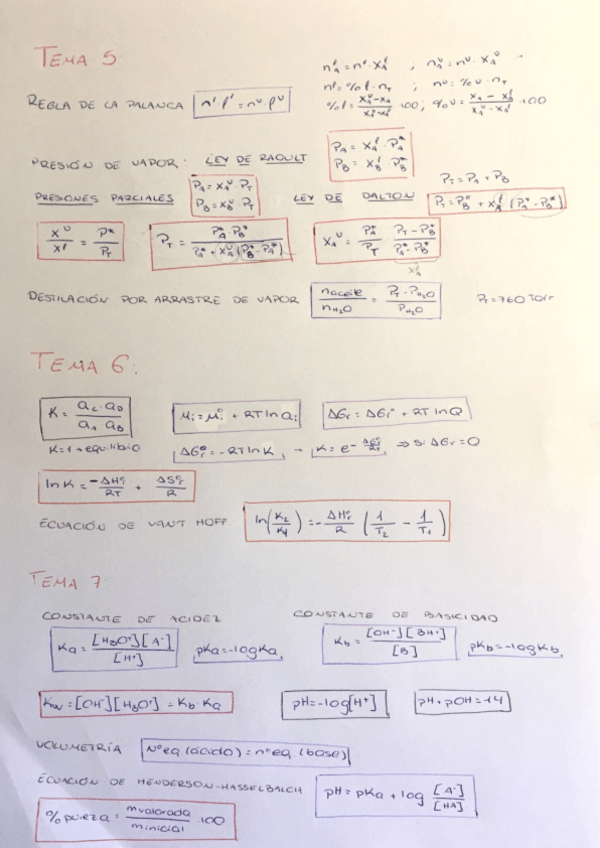 TEMA 5
nₐˡ = nˡ · xₐˡ ; nₐᵛ = nᵛ · xₐᵛ
nˡ = %l · n_T ; nᵛ = %v · n_T
REGLA DE LA PALANCA nˡ lˡ = nᵛ lᵛ
PRESIÓN DE VAPOR: LEY DE RAOULT
P_A = x_A^l · P_A^*
P_B = x_B^l · P_B^*
P_T = P_A + P_B
PRESIONES PARCIALES
P_A = x_A^v · P_T
P_B = x_B^v · P_T
LEY DE DALTON P_T = P_B^* + x_A^l (P_A^* - P_B^*)
x^v / x^l = P^* / P_T
P_T = P_A^* · P_B^* / (P_A^* + x_A^v (P_B^* - P_A^*))
x_A^v = P_A^* / P_T · (P_T - P_B^*) / (P_A^* - P_B^*)
x_A^l
DESTILACIÓN POR ARRASTRE DE VAPOR n aceite / n H₂O = (P_T - P_H₂O) / P_H₂O P_T = 760 Torr
TEMA 6:
K = a_C · a_D / a_A · a_B
μᵢ = μᵢ° + RT ln aᵢ
ΔGr = ΔGr° + RT ln Q
K = 1 → equilibrio ΔGr° = -RT ln K → K = e^(-ΔGr°/RT) ⇒ si ΔGr = 0
ln K = -ΔHr° / RT + ΔSr° / R
ECUACIÓN DE VANT HOFF ln(K₂/K₁) = -ΔHr°/R (1/T₂ - 1/T₁)
TEMA 7
CONSTANTE DE ACIDEZ CONSTANTE DE BASICIDAD
Ka = [H₃O⁺][A⁻] / [H⁺] pKa = -log Ka
Kb = [OH⁻][BH⁺] / [B] pKb = -log Kb
Kw = [OH⁻][H₃O⁺] = Kb · Ka pH = -log[H⁺] pH + pOH = 14
VOLUMETRÍA Nº eq (ácido) = nº eq (base)
ECUACIÓN DE HENDERSON-HASSELBALCH pH = pKa + log [A⁻] / [HA]
% pureza = m valorada / m inicial · 100